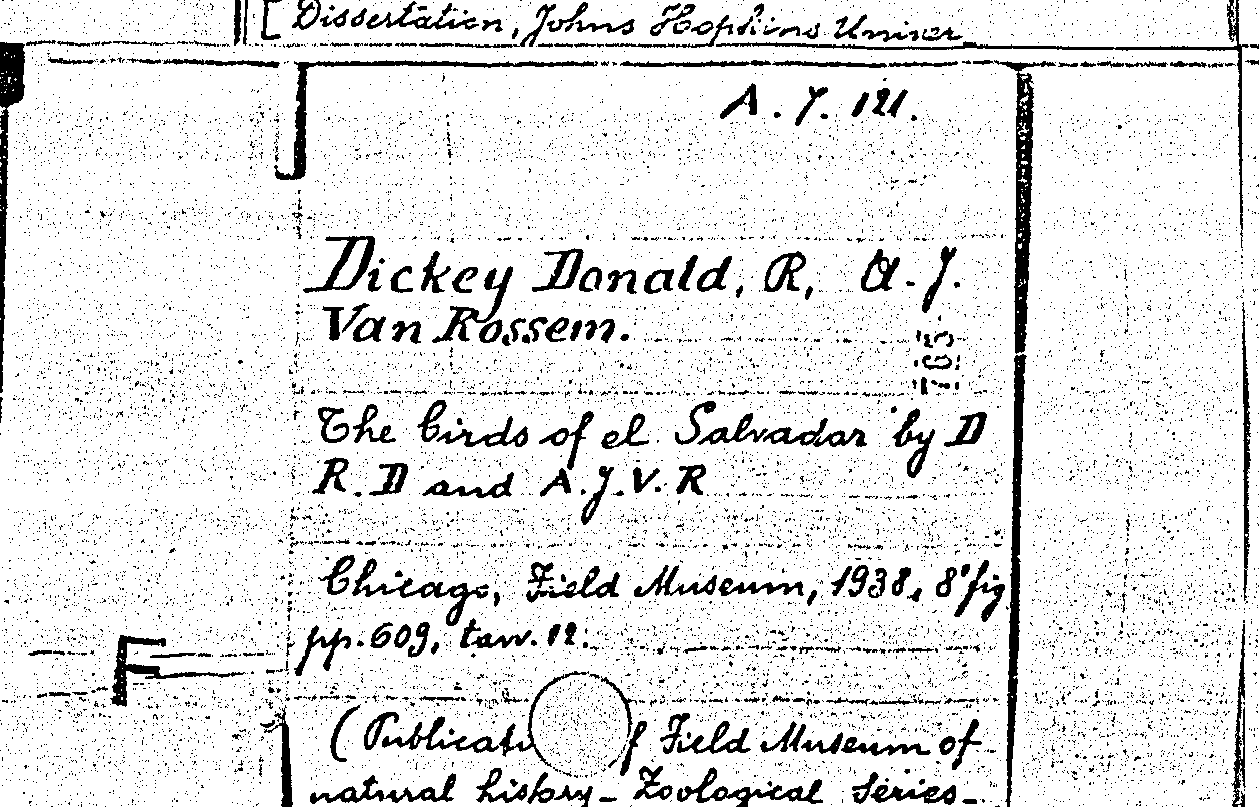 [ Dissertation, Johns Hopkins Univer
A. J. 121.
Dickey Donald, R, A. J.
Van Rossem.
705
The birds of el Salvador by D
R. D and A. J. V. R
Chicago, Field Museum, 1938, 8° fig
pp. 609, tavv. 12.
( Publicati f Field Museum of
natural history - Zoological Series -